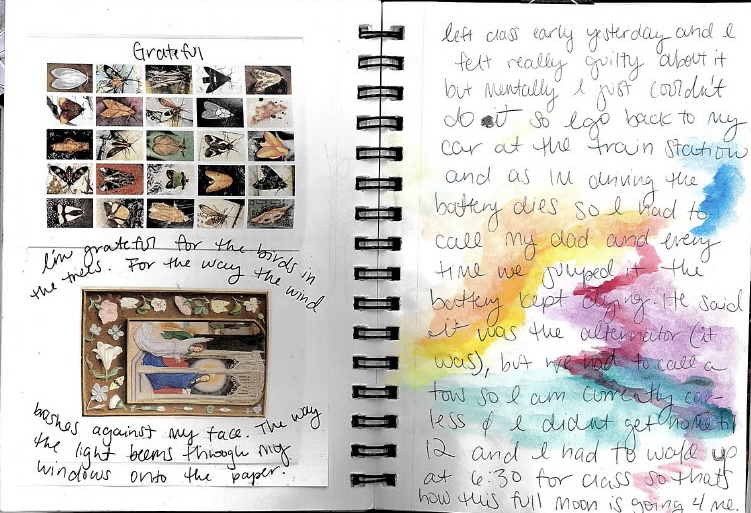 Grateful
I'm grateful for the birds in
the trees. For the way the wind
bashes against my face. The way
the light beems through my
windows onto the paper.
left class early yesterday and I
felt really guilty about it
but mentally I just couldn't
do it so I go back to my
car at the train station
and as I'm driving the
battery dies so I had to
call my dad and every
time we jumped it the
battery kept dying. He said
it was the alternator (it
was), but we had to call a
tow so I am currently car-
less & I didnt get home til
12 and I had to wake up
at 6:30 for class so thats
how this full moon is going 4 me.